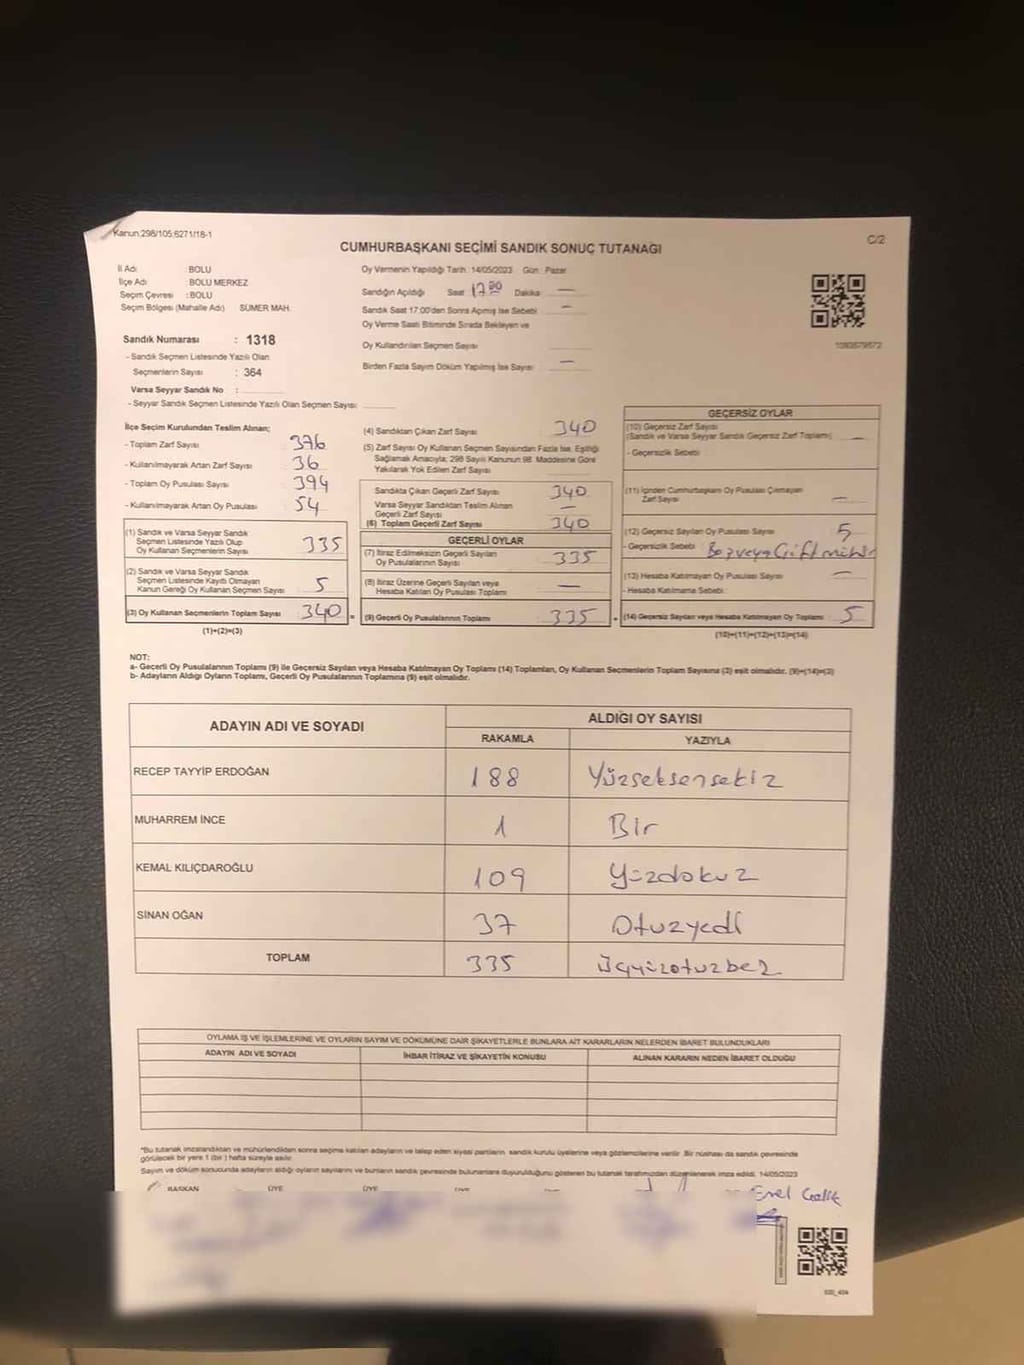 Kanun:298/105;6271/18-1
C/2
CUMHURBAŞKANI SEÇİMİ SANDIK SONUÇ TUTANAĞI
İl Adı : BOLU
İlçe Adı : BOLU MERKEZ
Seçim Çevresi : BOLU
Seçim Bölgesi (Mahalle Adı) SÜMER MAH.
Oy Vermenin Yapıldığı Tarih :14/05/2023 Gün : Pazar
Sandığın Açıldığı Saat 17 00 Dakika —
Sandık Saat 17:00'den Sonra Açılmış İse Sebebi —
Oy Verme Saati Bitiminde Sırada Bekleyen ve
Oy Kullandırılan Seçmen Sayısı
Birden Fazla Sayım Döküm Yapılmış İse Sayısı —
1080579572
Sandık Numarası : 1318
- Sandık Seçmen Listesinde Yazılı Olan
Seçmenlerin Sayısı : 364
Varsa Seyyar Sandık No :
- Seyyar Sandık Seçmen Listesinde Yazılı Olan Seçmen Sayısı:
İlçe Seçim Kurulundan Teslim Alınan;
- Toplam Zarf Sayısı 376
- Kullanılmayarak Artan Zarf Sayısı 36
- Toplam Oy Pusulası Sayısı 394
- Kullanılmayarak Artan Oy Pusulası 54
(1) Sandık ve Varsa Seyyar Sandık
Seçmen Listesinde Yazılı Olup
Oy Kullanan Seçmenlerin Sayısı 335
(2) Sandık ve Varsa Seyyar Sandık
Seçmen Listesinde Kayıtlı Olmayan
Kanun Gereği Oy Kullanan Seçmen Sayısı 5
(3) Oy Kullanan Seçmenlerin Toplam Sayısı 340 =
(1)+(2)=(3)
(4) Sandıktan Çıkan Zarf Sayısı 340
(5) Zarf Sayısı Oy Kullanan Seçmen Sayısından Fazla İse, Eşitliği
Sağlamak Amacıyla; 298 Sayılı Kanunun 98. Maddesine Göre
Yakılarak Yok Edilen Zarf Sayısı
Sandıkta Çıkan Geçerli Zarf Sayısı 340
Varsa Seyyar Sandıktan Teslim Alınan
Geçerli Zarf Sayısı —
(6) Toplam Geçerli Zarf Sayısı 340
GEÇERLİ OYLAR
(7) İtiraz Edilmeksizin Geçerli Sayılan
Oy Pusulalarının Sayısı 335
(8) İtiraz Üzerine Geçerli Sayılan veya
Hesaba Katılan Oy Pusulası Toplamı —
(9) Geçerli Oy Pusulalarının Toplamı 335 +
GEÇERSİZ OYLAR
(10) Geçersiz Zarf Sayısı
(Sandık ve Varsa Seyyar Sandık Geçersiz Zarf Toplamı) —
- Geçersizlik Sebebi
(11) İçinden Cumhurbaşkanı Oy Pusulası Çıkmayan
Zarf Sayısı —
(12) Geçersiz Sayılan Oy Pusulası Sayısı 5
- Geçersizlik Sebebi Boş veya Çift mühür
(13) Hesaba Katılmayan Oy Pusulası Sayısı —
- Hesaba Katılmama Sebebi
(14) Geçersiz Sayılan veya Hesaba Katılmayan Oy Toplamı 5
(10)+(11)+(12)+(13)=(14)
NOT:
a- Geçerli Oy Pusulalarının Toplamı (9) ile Geçersiz Sayılan veya Hesaba Katılmayan Oy Toplamı (14) Toplamları, Oy Kullanan Seçmenlerin Toplam Sayısına (3) eşit olmalıdır. (9)+(14)=(3)
b- Adayların Aldığı Oyların Toplamı, Geçerli Oy Pusulalarının Toplamına (9) eşit olmalıdır.
ADAYIN ADI VE SOYADI ALDIĞI OY SAYISI
RAKAMLA YAZIYLA
RECEP TAYYİP ERDOĞAN 188 Yüzseksensekiz
MUHARREM İNCE 1 Bir
KEMAL KILIÇDAROĞLU 109 Yüzdokuz
SİNAN OĞAN 37 Otuzyedi
TOPLAM 335 üçyüzotuzbeş
OYLAMA İŞ VE İŞLEMLERİNE VE OYLARIN SAYIM VE DÖKÜMÜNE DAİR ŞİKAYETLERLE BUNLARA AİT KARARLARIN NELERDEN İBARET BULUNDUKLARI
ADAYIN ADI VE SOYADI İHBAR İTİRAZ VE ŞİKAYETİN KONUSU ALINAN KARARIN NEDEN İBARET OLDUĞU
*Bu tutanak imzalandıktan ve mühürlendikten sonra seçime katılan adayların ve talep eden siyasi partilerin sandık kurulu üyelerine veya gözlemcilerine verilir. Bir nüshası da sandık çevresinde
görülecek bir yere 1 (bir) hafta süreyle asılır.
Sayım ve döküm sonucunda adayların aldığı oyların sayılarını ve bunların sandık çevresinde bulunanlara duyurulduğunu gösteren bu tutanak tarafımızdan düzenlenerek imza edildi. 14/05/2023
BAŞKAN ÜYE ÜYE ÜYE